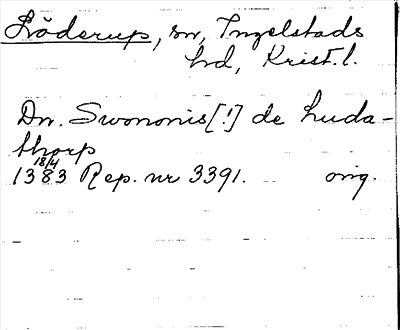 Löderup, sn, Ingelstads
hd, Krist.l.
Dn. Swononis[!] de Luda-
thorp
18/4
1383 Rep. nr 3391. orig.